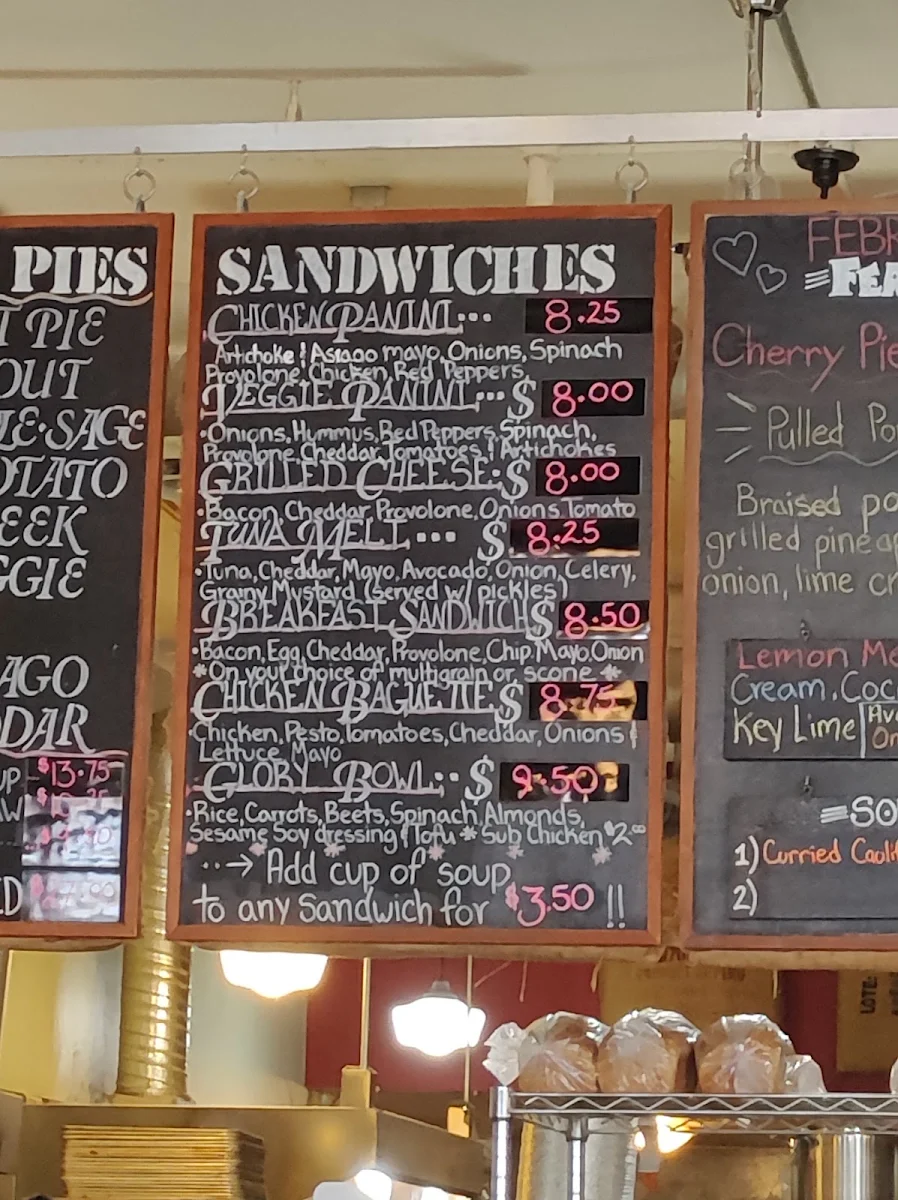 PIES
T PIE
OUT
LE·SAGE
OTATO
EEK
GGIE
AGO
DAR
UP $13.75
SANDWICHES
CHICKEN PANINI... 8.25
Artichoke & Asiago mayo, Onions, Spinach
Provolone, Chicken, Red Peppers,
VEGGIE PANINI... $ 8.00
•Onions, Hummus, Red Peppers, Spinach,
Provolone, Cheddar, Tomatoes, & Artichokes
GRILLED CHEESE: $ 8.00
•Bacon, Cheddar, Provolone, Onions, Tomato
TUNA MELT ... $ 8.25
•Tuna, Cheddar, Mayo, Avocado, Onion, Celery,
Grainy Mustard (served w/ pickles)
BREAKFAST SANDWICH $ 8.50
•Bacon, Egg, Cheddar, Provolone, Chip. Mayo, Onion
*On your choice of multigrain or scone *
CHICKEN BAGUETTE $ 8.75
•Chicken, Pesto, Tomatoes, Cheddar, Onions &
Lettuce, Mayo
GLORY BOWL:·· $ 9.50
•Rice, Carrots, Beets, Spinach, Almonds,
Sesame Soy dressing & Tofu * Sub Chicken $2.00
··→ Add cup of soup
to any Sandwich for $3.50 !!
FEBR
FEA
Cherry Pie
Pulled Po
Braised po
grilled pineap
onion, lime cr
Lemon Me
Cream, Coc
Key Lime
SO
1) Curried Cauli
2)